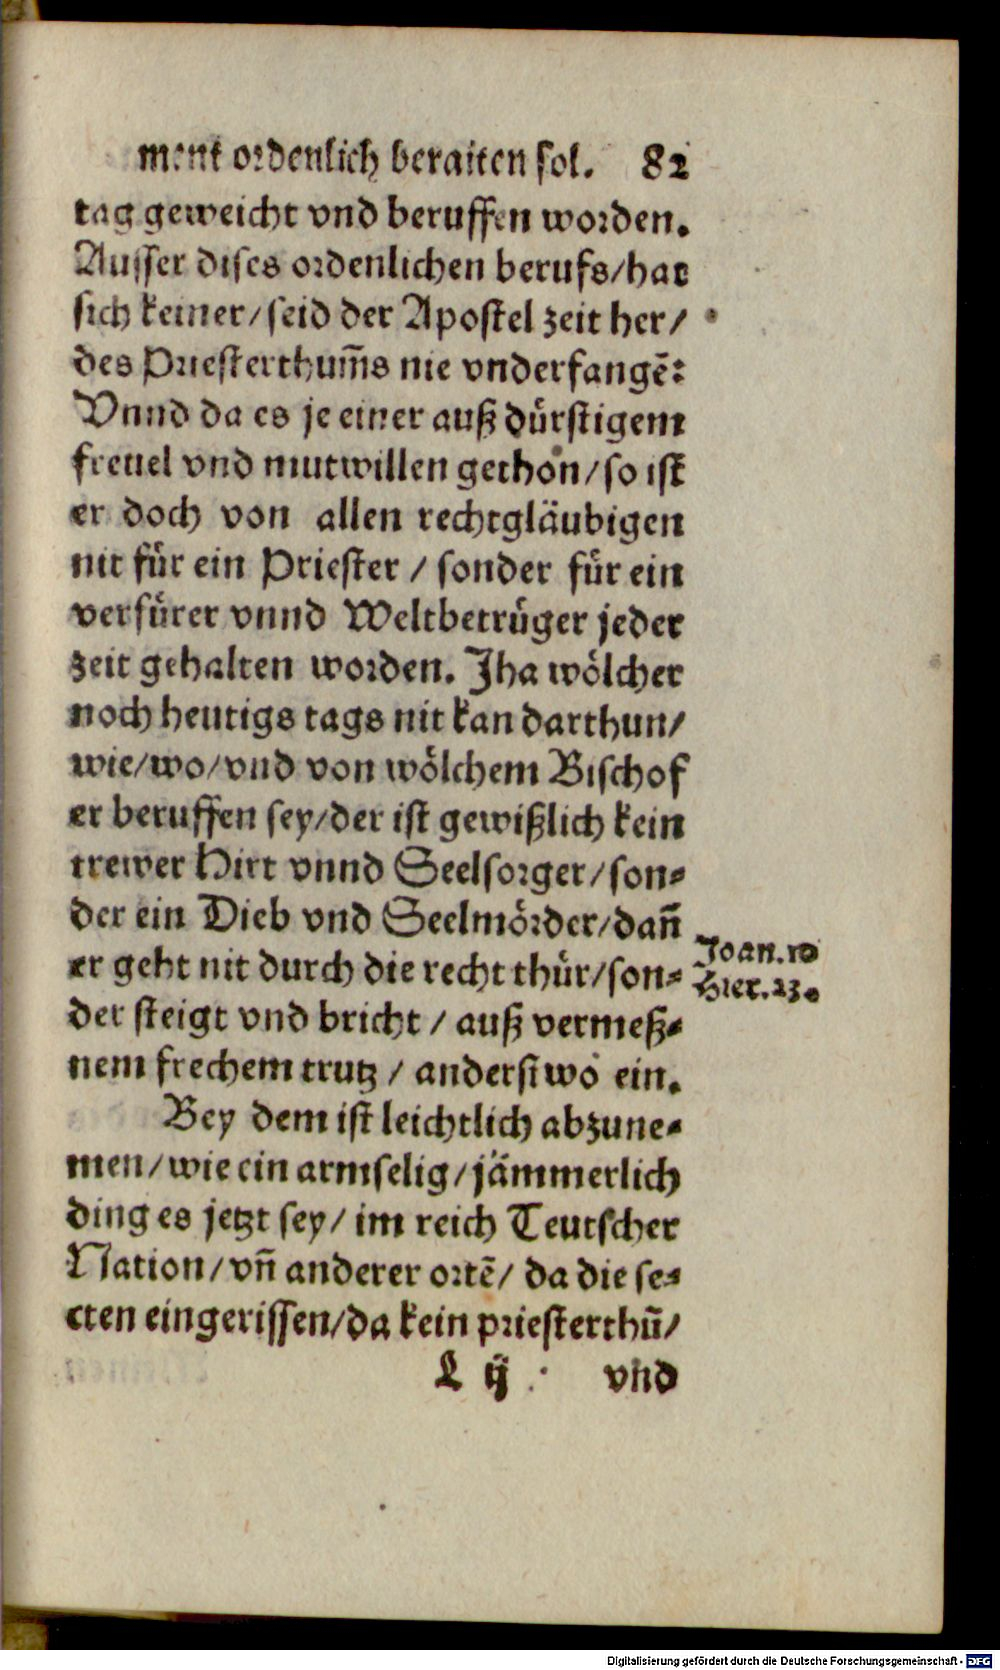 ment ordenlich beraiten sol. 82
tag geweicht vnd beruffen worden.
Ausser dises ordenlichen berufs/hat
sich keiner/seid der Apostel zeit her/
des Priesterthum̃s nie vnderfangẽ:
Vnnd da es je einer auß dürstigem
freuel vnd mutwillen gethon/so ist
er doch von allen rechtgläubigen
nit für ein Priester / sonder für ein
verfürer vnnd Weltbetrüger jeder
zeit gehalten worden. Jha wölcher
noch heutigs tags nit kan darthun/
wie/wo/vnd von wölchem Bischof
er beruffen sey/der ist gewißlich kein
trewer Hirt vnnd Seelsorger/son-
der ein Dieb vnd Seelmörder/dañ
er geht nit durch die recht thür/son-
der steigt vnd bricht / auß vermeß-
nem frechem trutz / anderstwo ein.
Joan.10
Hier.23.
Bey dem ist leichtlich abzune-
men/wie ein armselig/jämmerlich
ding es jetzt sey/ im reich Teutscher
Nation/vñ anderer ortẽ/ da die se-
cten eingerissen/da kein priesterthũ/
L ij vnd
Digitalisierung gefördert durch die Deutsche Forschungsgemeinschaft - DFG